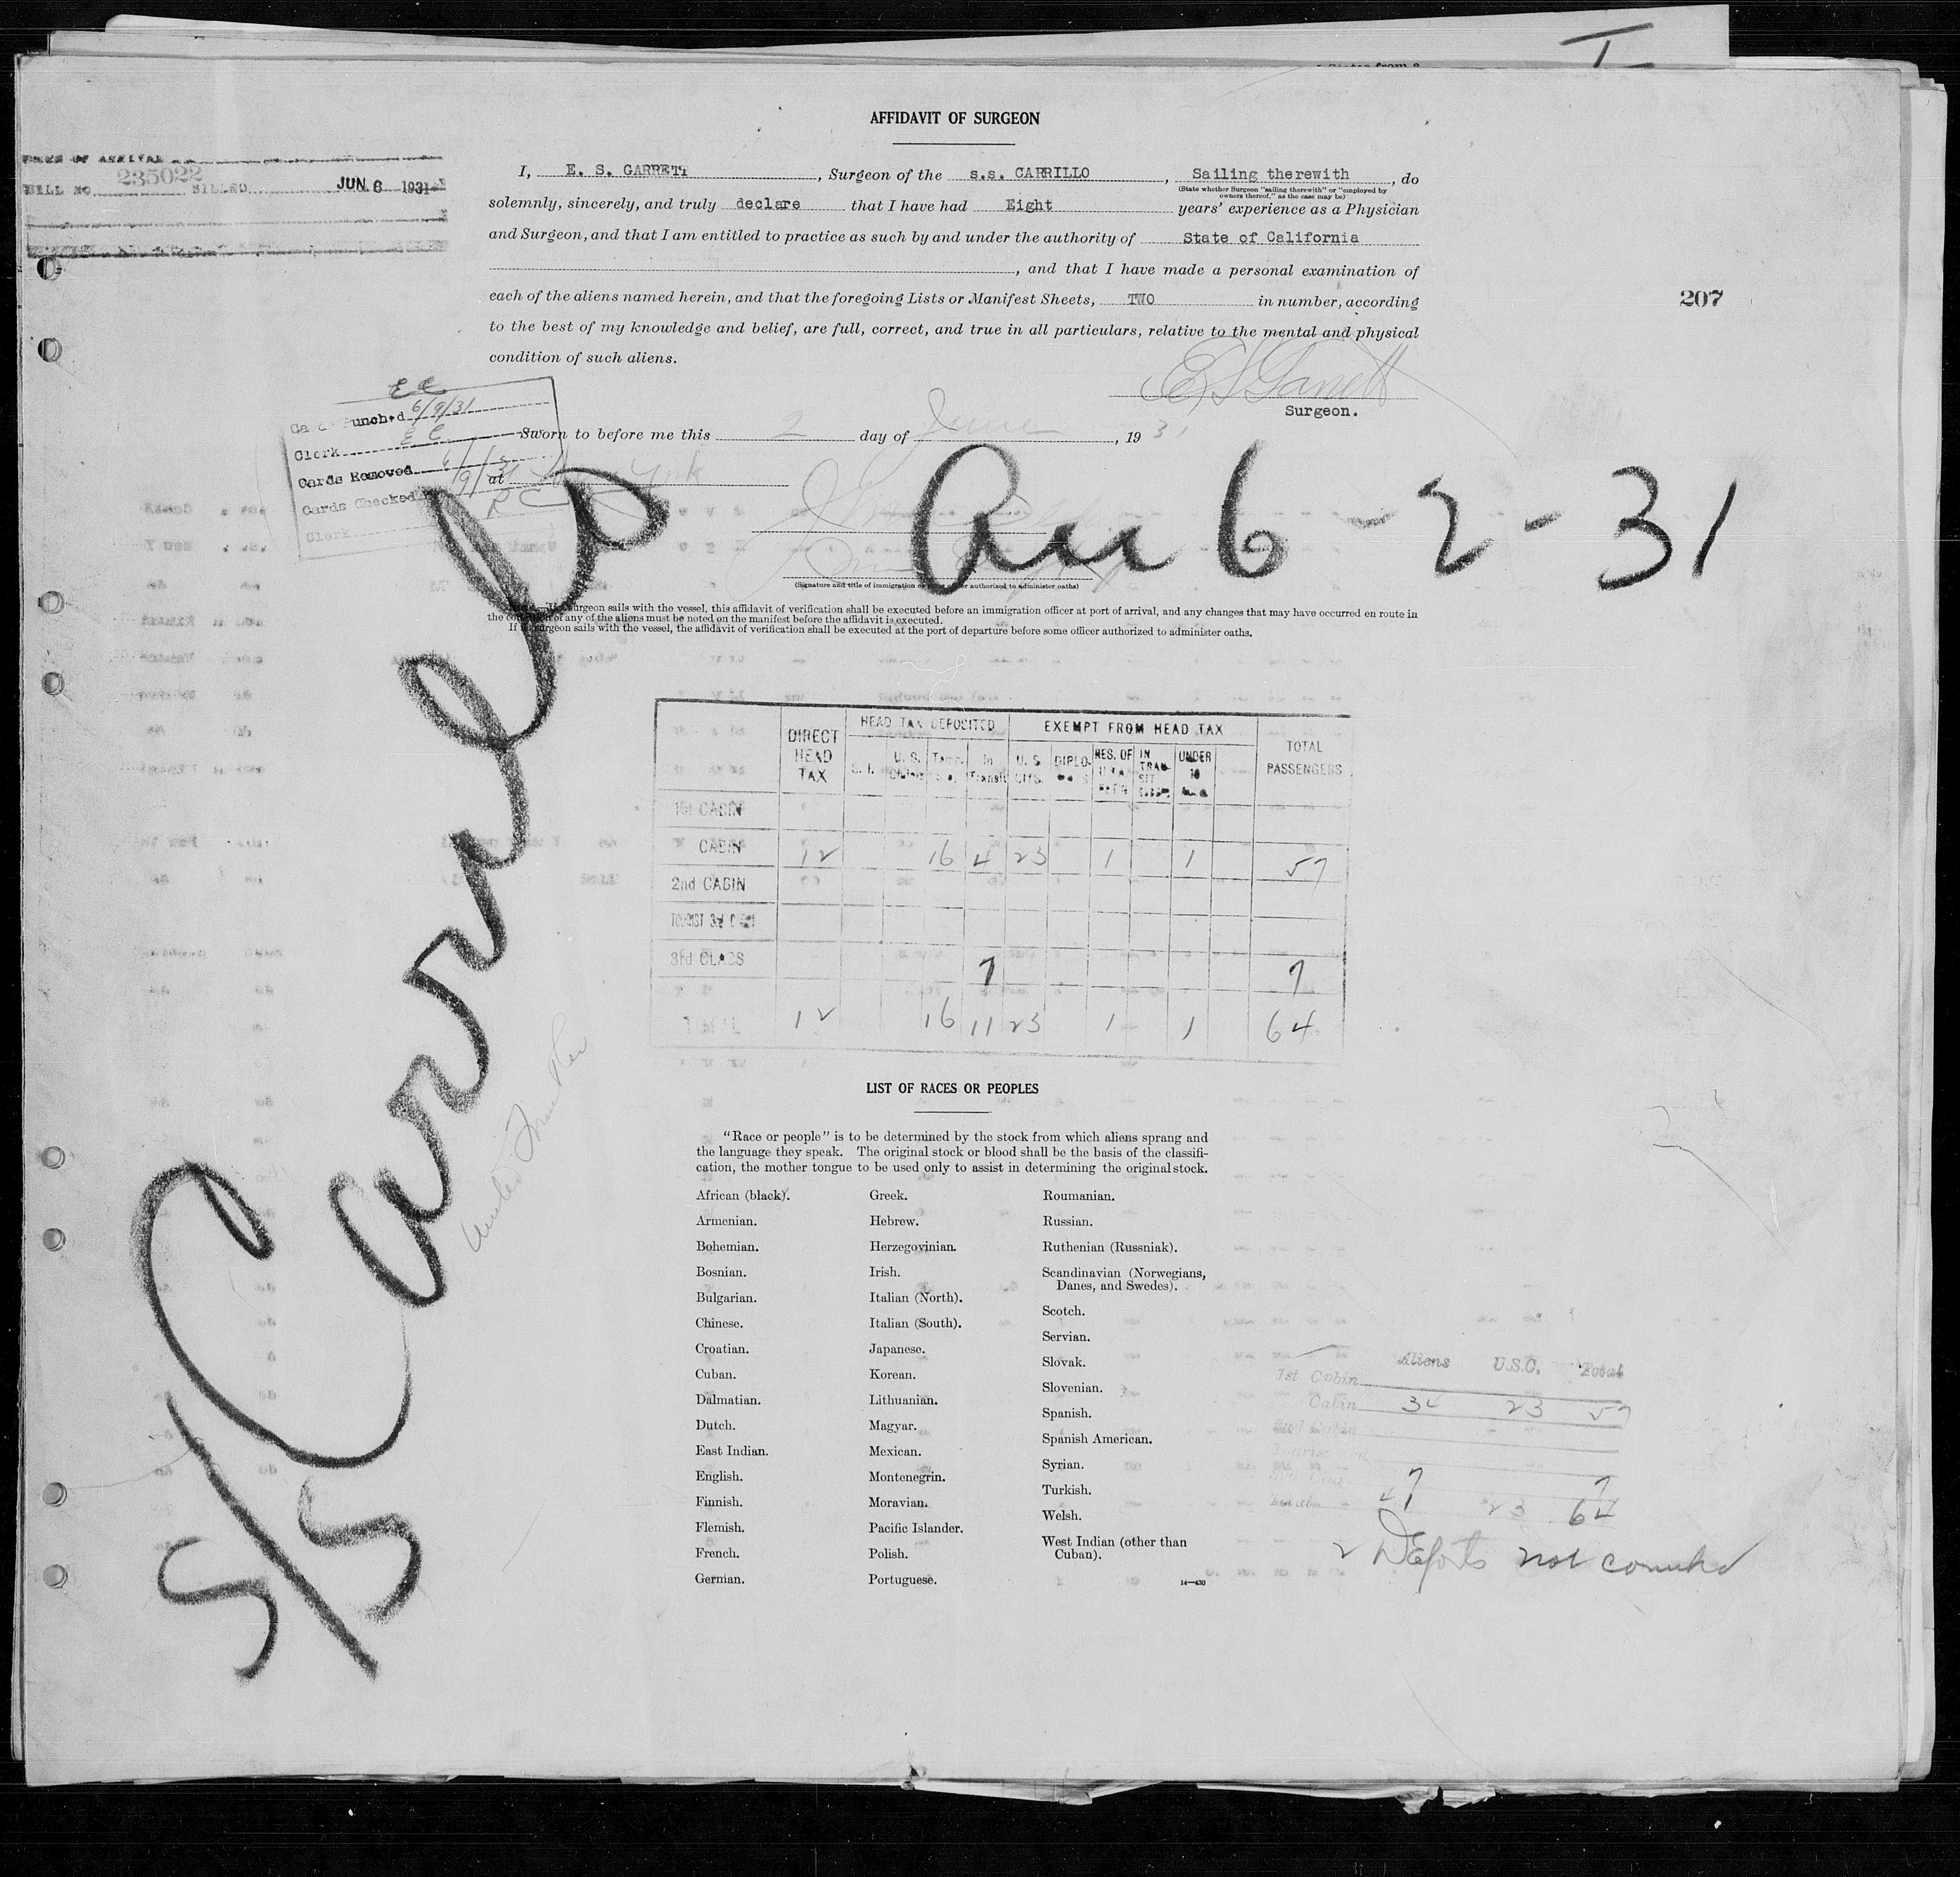 AFFIDAVIT OF SURGEON
BILL NO 235022 BILLED JUN 8 1931
I, E. S. GARRETT, Surgeon of the s.s. CARRILLO, Sailing therewith, do
(State whether Surgeon "sailing therewith" or "employed by owners thereof," as the case may be)
solemnly, sincerely, and truly declare that I have had Eight years' experience as a Physician
and Surgeon, and that I am entitled to practice as such by and under the authority of State of California
, and that I have made a personal examination of
each of the aliens named herein, and that the foregoing Lists or Manifest Sheets, TWO in number, according
207
to the best of my knowledge and belief, are full, correct, and true in all particulars, relative to the mental and physical
condition of such aliens.
E S Garrett
Surgeon.
Card Punched 6/9/31
Clerk E C
Cards Removed
Cards Checked
Clerk
Sworn to before me this 2 day of June, 1931
at York
Arr 6-2-31
(Signature and title of immigration or other officer authorized to administer oaths)
NOTE.—If surgeon sails with the vessel, this affidavit of verification shall be executed before an immigration officer at port of arrival, and any changes that may have occurred en route in
the condition of any of the aliens must be noted on the manifest before the affidavit is executed.
If surgeon sails with the vessel, the affidavit of verification shall be executed at the port of departure before some officer authorized to administer oaths.
S/S Carrillo
DIRECT HEAD TAX HEAD TAX DEPOSITED EXEMPT FROM HEAD TAX TOTAL PASSENGERS
S. I. U. S. In Transit U. S. Cits. DIPLO- RES. OF IN TRAN- SIT UNDER 16
1st CABIN
CABIN 12 16 4 23 1 1 57
2nd CABIN
TOURIST 3rd
3rd CLASS 7 7
TOTAL 12 16 11 23 1 1 64
LIST OF RACES OR PEOPLES
"Race or people" is to be determined by the stock from which aliens sprang and
the language they speak. The original stock or blood shall be the basis of the classifi-
cation, the mother tongue to be used only to assist in determining the original stock.
African (black).
Armenian.
Bohemian.
Bosnian.
Bulgarian.
Chinese.
Croatian.
Cuban.
Dalmatian.
Dutch.
East Indian.
English.
Finnish.
Flemish.
French.
German.
Greek.
Hebrew.
Herzegovinian.
Irish.
Italian (North).
Italian (South).
Japanese.
Korean.
Lithuanian.
Magyar.
Mexican.
Montenegrin.
Moravian.
Pacific Islander.
Polish.
Portuguese.
Roumanian.
Russian.
Ruthenian (Russniak).
Scandinavian (Norwegians,
Danes, and Swedes).
Scotch.
Servian.
Slovak.
Slovenian.
Spanish.
Spanish American.
Syrian.
Turkish.
Welsh.
West Indian (other than
Cuban).
14—430
Aliens U.S.C. Total
1st Cabin
Cabin 34 23 57
2nd Cabin
7 7
Total 41 23 64
2 Deports not